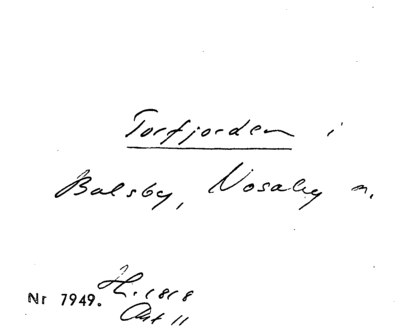 Torfjorden i
Balsby, Nosaby n.
Nr 7949. H. 1818
Akt 11